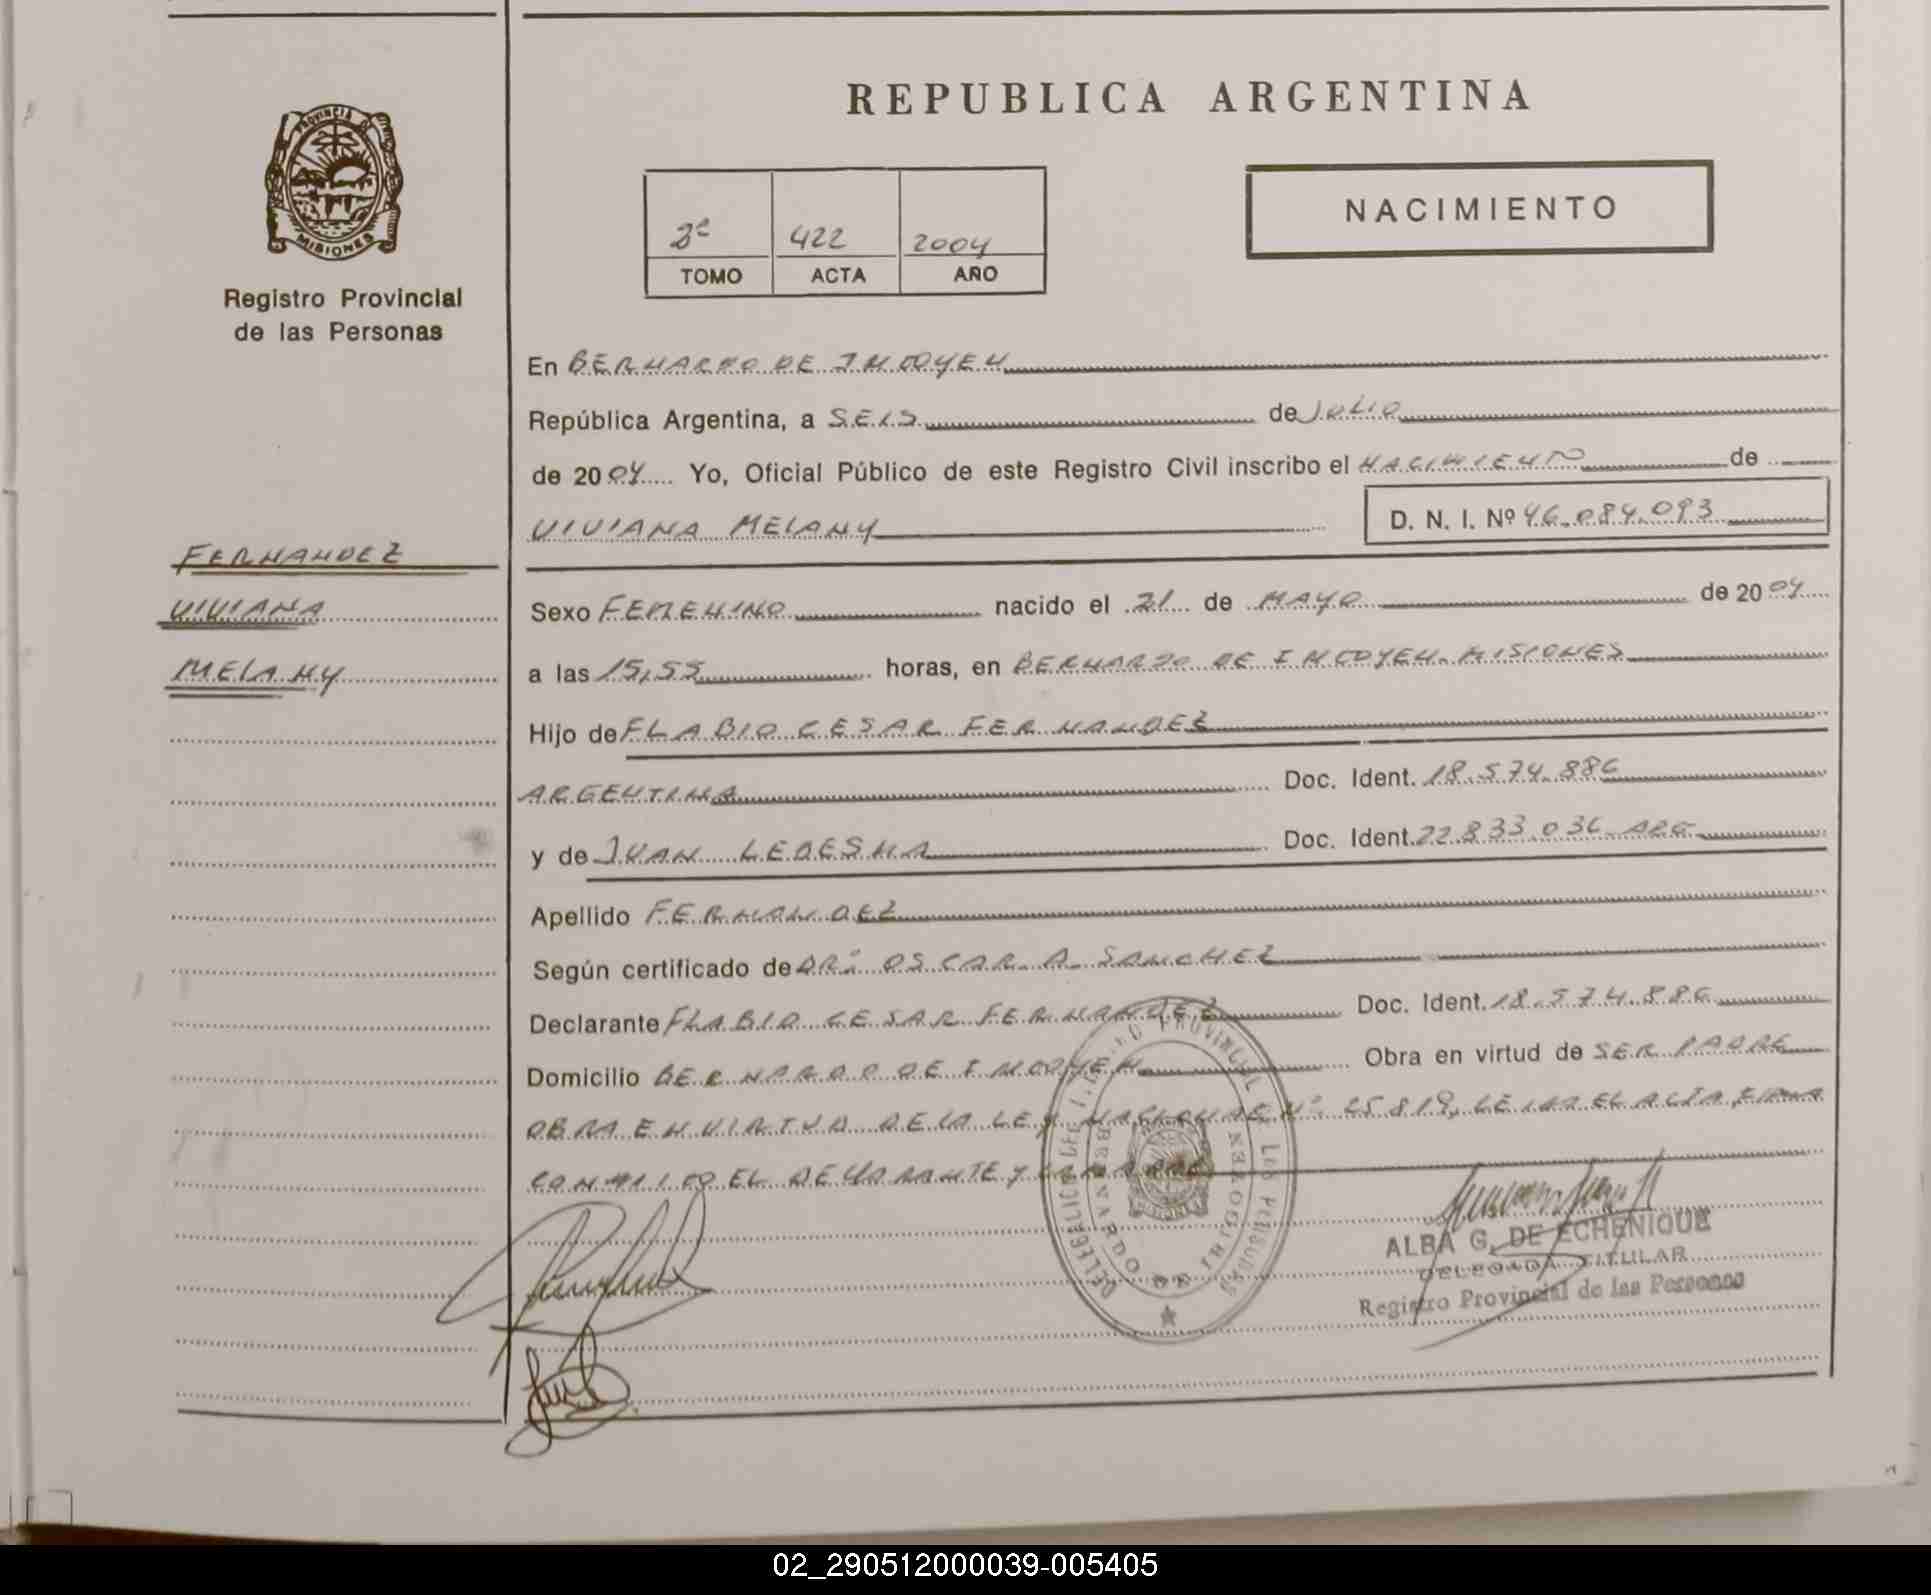 REPUBLICA ARGENTINA
PROVINCIA DE
MISIONES
Registro Provincial
de las Personas
2º 422 2004
TOMO ACTA AÑO
NACIMIENTO
En BERNARDO DE IRIGOYEN
República Argentina, a SEIS de JULIO
de 2004 Yo, Oficial Público de este Registro Civil inscribo el NACIMIENTO de
VIVIANA MELANY D. N. I. Nº 46.084.093
FERNANDEZ
VIVIANA
MELANY
Sexo FEMENINO nacido el 21 de MAYO de 2004
a las 15,55 horas, en BERNARDO DE IRIGOYEN. MISIONES
Hijo de FLABIO CESAR FERNANDEZ
ARGENTINA Doc. Ident. 18.574.886
y de JUAN LEDESMA Doc. Ident. 22.833.036 ARG
Apellido FERNANDEZ
Según certificado de DR: OSCAR A. SANCHEZ
Declarante FLABIO CESAR FERNANDEZ Doc. Ident. 18.574.886
Domicilio BERNARDO DE IRIGOYEN Obra en virtud de SER PADRE
OBRA EN VIRTUD DE LA LEY NACIONAL Nº 25819, LEIDA EL ACTA, FIRMA
CONMIGO EL DECLARANTE Y LA MADRE
ALBA G. DE ECHENIQUE
DELEGADA TITULAR
Registro Provincial de las Personas
02_290512000039-005405